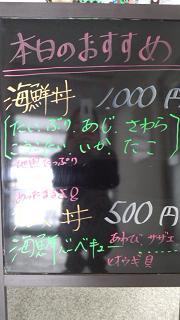 本日のおすすめ
海鮮丼 1,000円
たい、ぶり、あじ、さわら
いか、たこ
丼 500円
海鮮バーベキュー あわび、サザエ
ヒオウギ貝